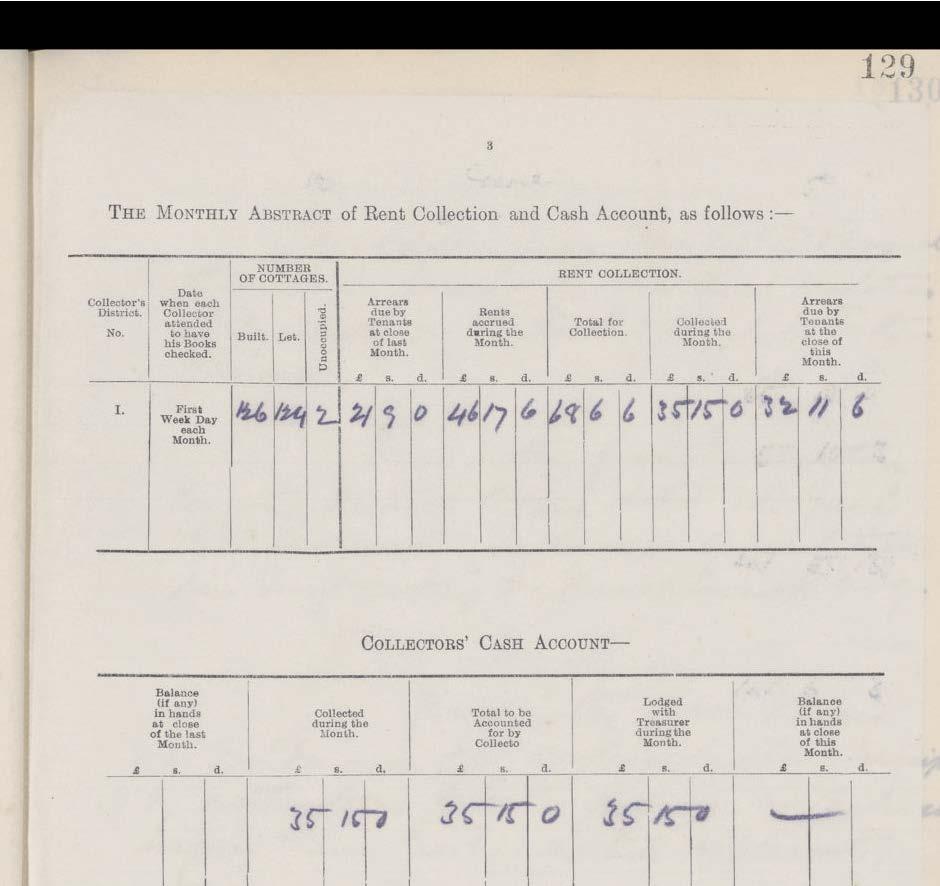 129
130
3
THE MONTHLY ABSTRACT of Rent Collection and Cash Account, as follows :—
Collector's District. No.
Date when each Collector attended to have his Books checked.
NUMBER OF COTTAGES.
Built. Let. Unoccupied.
RENT COLLECTION.
Arrears due by Tenants at close of last Month.
Rents accrued during the Month.
Total for Collection.
Collected during the Month.
Arrears due by Tenants at the close of this Month.
£ s. d. £ s. d. £ s. d. £ s. d. £ s. d.
I. First Week Day each Month. 126 124 2 21 9 0 46 17 6 68 6 6 35 15 0 32 11 6
COLLECTORS' CASH ACCOUNT—
Balance (if any) in hands at close of the last Month.
Collected during the Month.
Total to be Accounted for by Collecto
Lodged with Treasurer during the Month.
Balance (if any) in hands at close of this Month.
£ s. d. £ s. d. £ s. d. £ s. d. £ s. d.
35 15 0 35 15 0 35 15 0 —